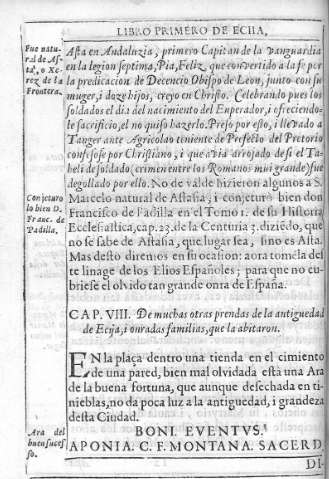 LIBRO PRIMERO DE ECIIA,
Fue natu-
ral de As-
ta, o Xe-
rez de la
Frontera.
Asta en Andaluzia, primero Capitan de la vanguardia
en la legion septima, Pia, Feliz, que convertido a la fe por
la predicacion de Decencio Obispo de Leon, juntò con su
muger, i doze hijos, creyo en Christo. Celebrando pues los
soldados el dia del nacimiento del Enperador, i ofreciendo-
le sacrificio, el no quiso hazerlo. Preso por esto, i llevado a
Tanger ante Agricolao teniente de Perfecto del Pretorio
confesose por Christiano, i que avia arrojado de si el Ta-
heli de soldado, (crimen entre los Romanos mui grande) fue
degollado por ello. No de valde hizieron algunos a S.
Marcelo natural de Astasia, i conjeturò bien don
Francisco de Padilla en el Tomo 1. de su Historia
Ecclesiastica, cap. 23. de la Centuria 3. diziẽdo, que
no se sabe de Astasia, que lugar sea, sino es Asta.
Mas desto diremos en su ocasion: aora tomela des
te linage de los Elios Españoles; para que no cu-
briese el olvido tan grande onra de España.
Conjeturo
lo bien D.
Franc. de
Padilla.
CAP. VIII. De muchas otras prendas de la antiguedad
de Ecija, i onradas familias, que la abitaron.
EN la plaça dentro una tienda en el cimiento
de una pared, bien mal olvidada està una Ara
de la buena fortuna, que aunque desechada en ti-
nieblas, no da poca luz a la antiguedad, i grandeza
desta Ciudad.
Ara del
buen suces
so.
BONI. EVENTVS.
APONIA. C. F. MONTANA. SACERD
DI-